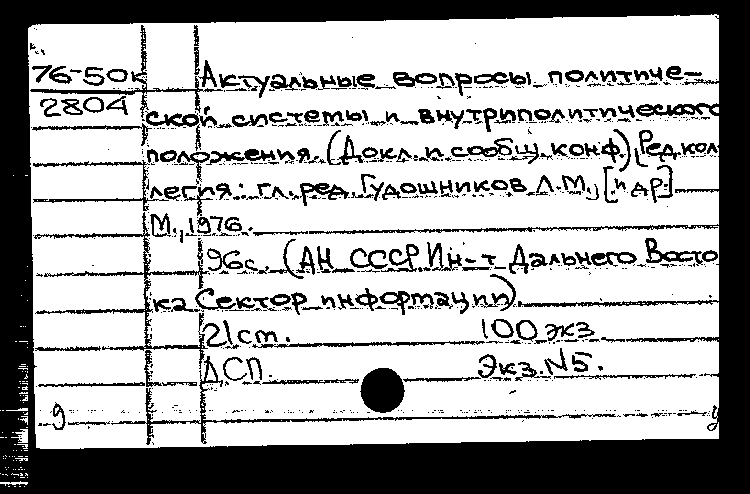 76-50к Актуальные вопросы политиче-
2804 ской системы и внутриполитического
положения. (Докл. и сообщ. конф.) Ред.кол
легия: гл. ред. Гудошников Л.М., [и др.]
М., 1976.
96с. (АН СССР Ин-т Дальнего Восто
ка Сектор информации).
21 ст. 100 экз
ДСП. Экз. N5.
9 у